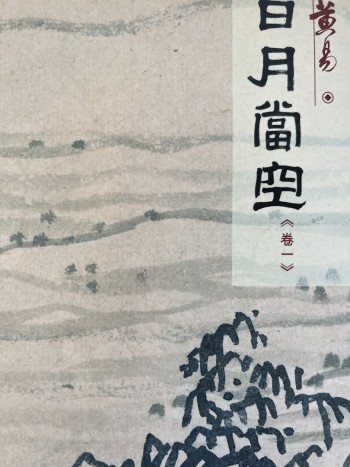 黄易
日月當空
《卷一》